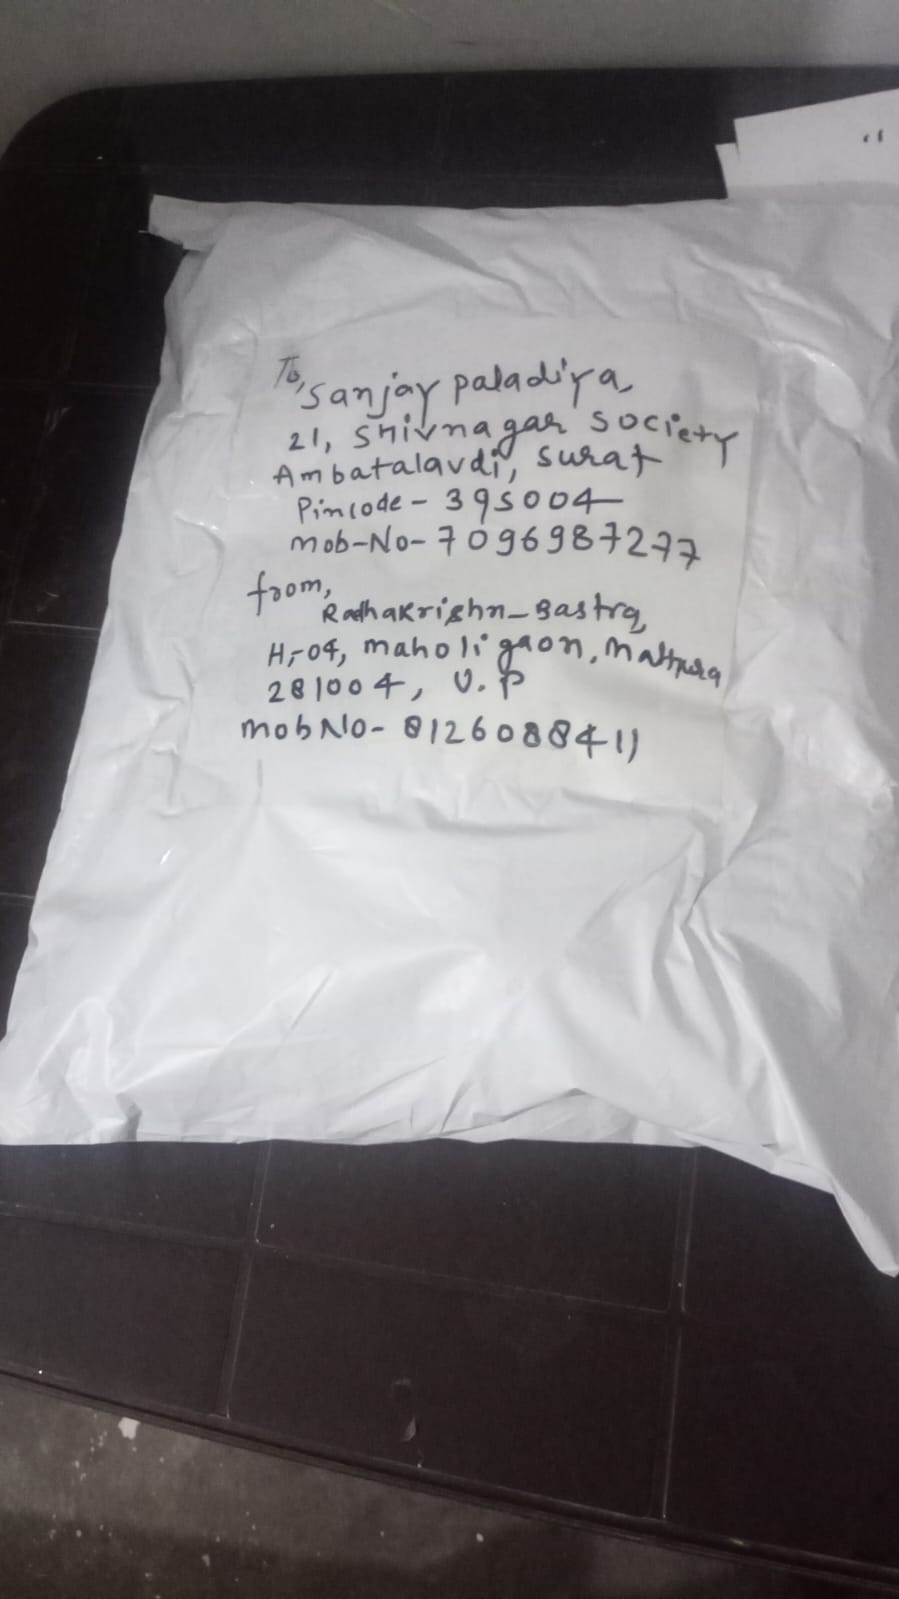 To,
Sanjay paladiya,
21, Shivnagar society
Ambatalavdi, surat
Pincode - 395004
mob-No- 7096987277
from,
RadhaKrishn_Bastra,
H,-04, maholi gaon, Mathura
281004, U.P
mob No- 8126088411